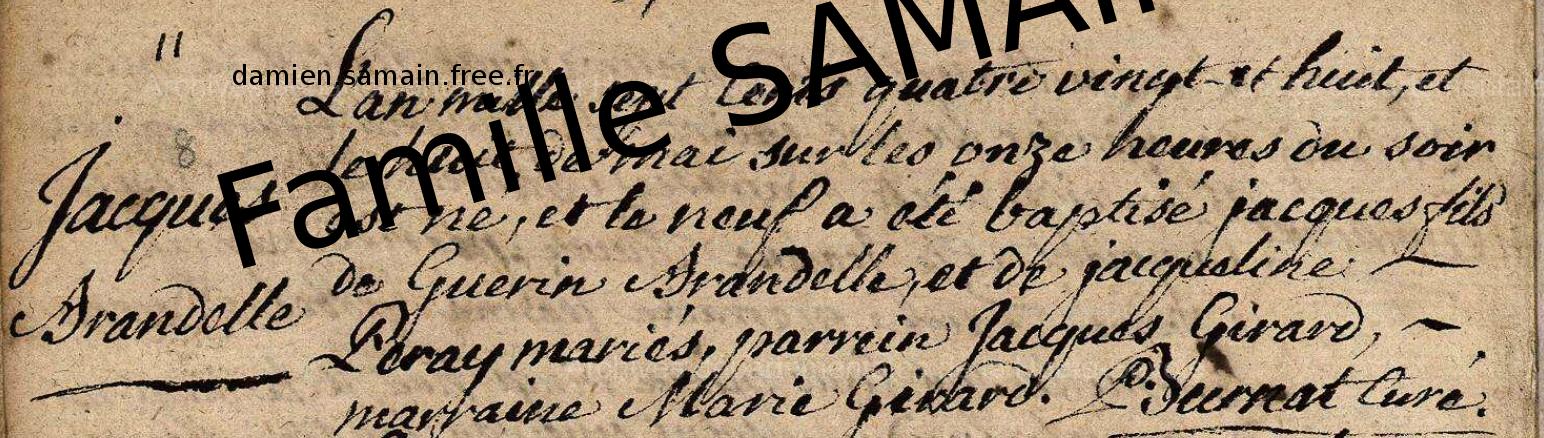 11
damien.samain.free.fr
Famille SAMAIN
8
Jacques
Brandelle
L'an mille sept Cents quatre vingt et huit, et
le huit de mai sur les onze heures du soir
est né, et le neuf a été baptisé jacques fils
de Guerin Brandelle, et de jacqueline
Peray mariés, parrein Jacques Girard,
marraine Marie Girard. Curé.